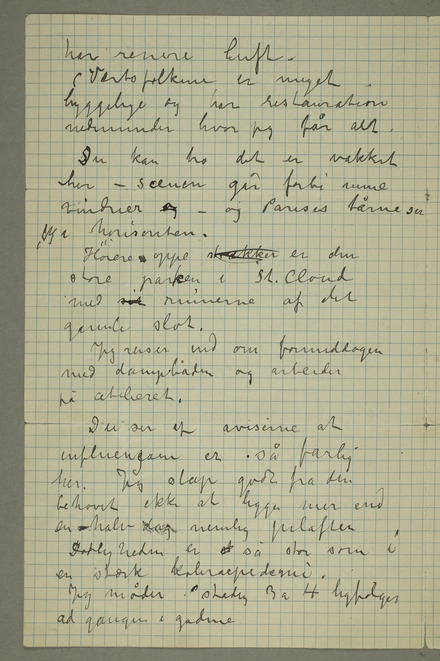 har renere luft –
Vertsfolkene er meget
hyggelige og har restauration
nedenunder hvor jeg får alt.
Du kan tro det er vakkert
her – Seenen går forbi mine
vinduer – og Parises tårne ser
jeg i horisonten.
Høiere oppe er den
store parken i St. Cloud
med ruinerne af det
gamle slot.
Jeg reiser ind om formiddagen
med dampbåden og arbeider
på atelieret.
Du ser af aviserne at
influenzam er så farlig
her. Jeg slap godt fra den
behøvet ikke at ligge mer end
en halv dag nemlig julaften,
Dødligheden er så stor som i
en stærk koleraepidemi.
Jeg møder stadig 3 a 4 ligfølger
ad gangen i gaderne